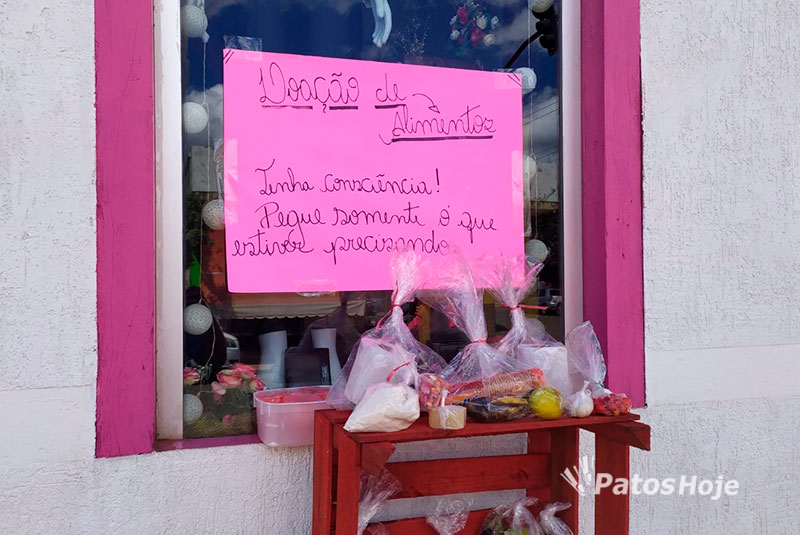 Doação de
Alimentos
Tenha consciência!
Pegue somente o que
estiver precisando
PatosHoje